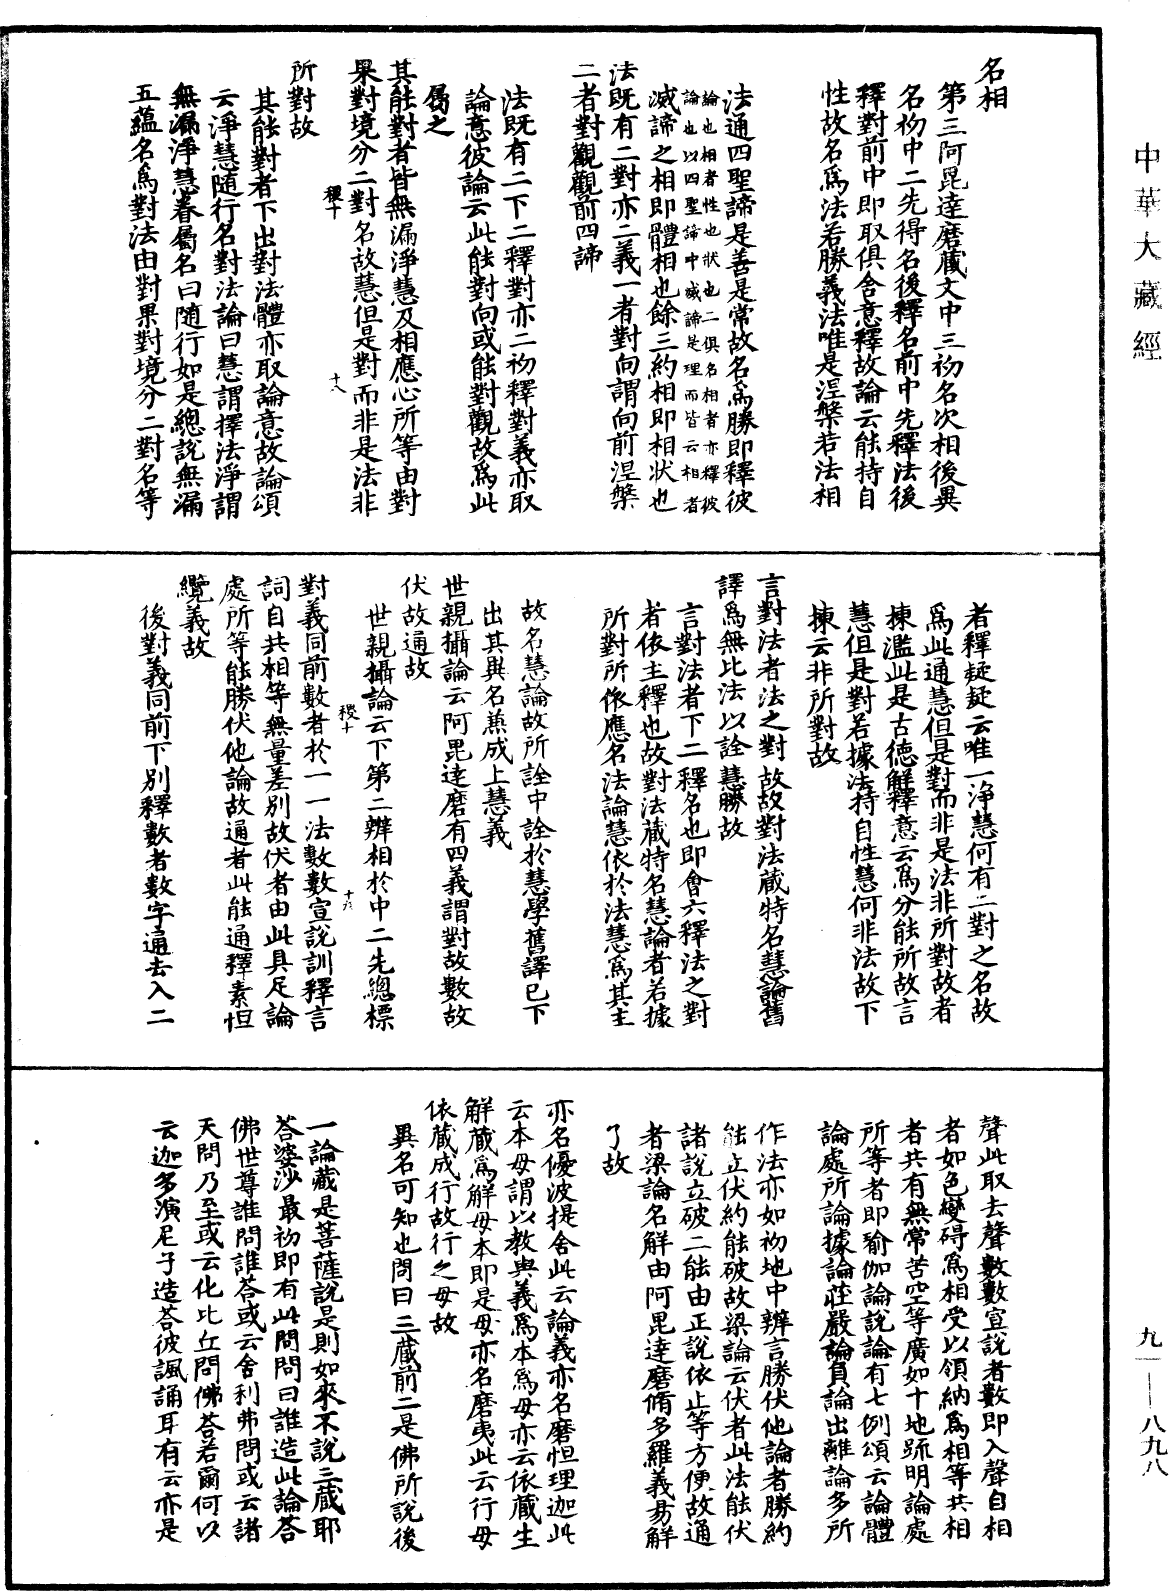 中華大藏經
名相
第三阿毘達磨藏文中三初名次相後異
名初中二先得名後釋名前中先釋法後
釋對前中即取俱舍意釋故論云能持自
性故名爲法若勝義法唯是涅槃若法相
法通四聖諦是善是常故名爲勝即釋彼
論也相者性也狀也二俱名相者亦釋彼
論也以四聖諦中滅諦是理而皆云相者
滅諦之相即體相也餘三約相即相狀也
法既有二對亦二義一者對向謂向前涅槃
二者對觀觀前四諦
法既有二下二釋對亦二初釋對義亦取
論意彼論云此能對向或能對觀故爲此
屬之
其能對者皆無漏淨慧及相應心所等由對
果對境分二對名故慧但是對而非是法非
稷十
十八
所對故
其能對者下出對法體亦取論意故論頌
云淨慧随行名對法論曰慧謂擇法淨謂
無漏淨慧眷屬名曰随行如是總說無漏
五藴名爲對法由對果對境分二對名等
者釋疑疑云唯一淨慧何有二對之名故
爲此通慧但是對而非是法非所對故者
揀濫此是古德解釋意云爲分能所故言
慧但是對若據法持自性慧何非法故下
揀云非所對故
言對法者法之對故故對法藏特名慧論舊
譯爲無比法以詮慧勝故
言對法者下二釋名也即會六釋法之對
者依主釋也故對法藏特名慧論者若據
所對所依應名法論慧依於法慧爲其主
故名慧論故所詮中詮於慧學舊譯已下
出其異名兼成上慧義
世親攝論云阿毘達磨有四義謂對故數故
伏故通故
世親攝論云下第二辨相於中二先總標
稷十
十九
對義同前數者於一一法數數宣說訓釋言
詞自共相等無量差別故伏者由此具足論
處所等能勝伏他論故通者此能通釋素怛
纜義故
後對義同前下別釋數者數字通去入二
聲此取去聲數數宣說者數即入聲自相
者如色變碍爲相受以領納爲相等共相
者共有無常苦空等廣如十地疏明論處
所等者即瑜伽論說論有七例頌云論體
論處所論據論莊嚴論負論出離論多所
作法亦如初地中辨言勝伏他論者勝約
能立伏約能破故梁論云伏者此法能伏
諸說立破二能由正說依止等方便故通
者梁論名解由阿毘達磨脩多羅義易解
了故
亦名優波提舍此云論義亦名磨怛理迦此
云本母謂以教與義爲本爲母亦云依藏生
解藏爲解母本即是母亦名磨夷此云行母
依藏成行故行之母故
異名可知也問曰三藏前二是佛所說後
一論藏是菩薩說是則如來不說三藏耶
荅婆沙最初即有此問問曰誰造此論荅
佛世尊誰問誰荅或云舍利弗問或云諸
天問乃至或云化比丘問佛荅若爾何以
云迦多演尼子造荅彼諷誦耳有云亦是
九一——八九八